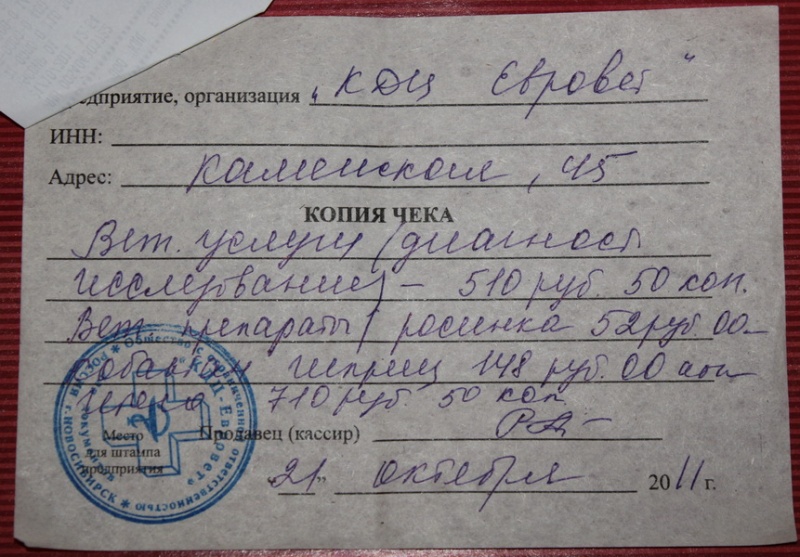 редприятие, организация „КДЦ Евровет"
ИНН:
Адрес: Каменская, 45
КОПИЯ ЧЕКА
Вет. услуги (диагност
исследование) – 510 руб. 50 коп.
Вет. препараты / росинка 52 руб. 00–
148 руб. 00 коп
710 руб. 50 коп
Продавец (кассир)
Место
для штампа
предприятия
"21" октября 2011 г.
Общество с ограниченной ответственностью
"КДЦ-Евровет"
РОССИЯ * г. НОВОСИБИРСК *